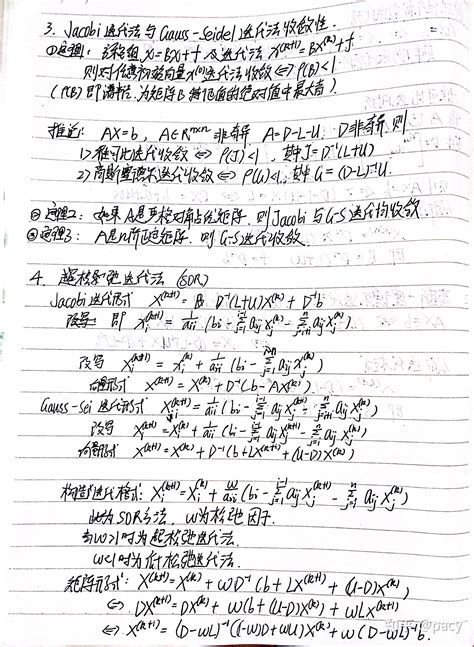 3. Jacobi迭代法与Gauss-Seidel迭代法收敛性.
①定理1: 方程组 X=BX+f 及迭代法 X^(k+1)=BX^(k)+f
则对任意初始向量X^(0)迭代法收敛⇔ρ(B)<1
(ρ(B)即谱半径,为矩阵B特征值的绝对值中最大者)
推论: AX=b, A∈R^(n×n)非奇异 A=D-L-U, D非奇异, 则
1>雅可比迭代收敛⇔ρ(J)<1, 其中J=D^-1(L+U)
2>高斯塞德尔迭代收敛⇔ρ(G)<1, 其中G=(D-L)^-1U.
定理2: 如果A是严格对角占优矩阵,则Jacobi与G-S迭代均收敛.
定理3: A是n阶正定矩阵,则G-S迭代收敛.
4. 超松弛迭代法 (SOR)
Jacobi迭代形式 X^(k+1)= D^-1(L+U)X^(k)+D^-1b
即 x_i^(k+1)=1/a_ii (b_i-Σ_{j=1}^{i-1} a_ij x_j^(k)-Σ_{j=i+1}^{n} a_ij x_j^(k))
改写 x_i^(k+1)=x_i^(k)+1/a_ii (b_i-Σ_{j=1}^{n} a_ij x_j^(k))
向量形式 X^(k+1)=X^(k)+D^-1(b-AX^(k))
Gauss-Sei迭代形式 x_i^(k+1)=1/a_ii (b_i-Σ_{j=1}^{i-1} a_ij x_j^(k+1)-Σ_{j=i+1}^{n} a_ij x_j^(k))
改写 x_i^(k+1)=x_i^(k)+1/a_ii (b_i-Σ_{j=1}^{i-1} a_ij x_j^(k+1)-Σ_{j=i}^{n} a_ij x_j^(k))
向量形式 X^(k+1)=X^(k)+D^-1(b+LX^(k+1)+(U-D)X^(k))
构造迭代格式: x_i^(k+1)=x_i^(k)+ω/a_ii (b_i-Σ_{j=1}^{i-1} a_ij x_j^(k+1)-Σ_{j=i}^{n} a_ij x_j^(k))
此为SOR方法, ω为松弛因子.
当ω>1时为超松弛迭代法.
ω<1时为低松弛迭代法.
矩阵形式: X^(k+1)=X^(k)+ωD^-1(b+LX^(k+1)+(U-D)X^(k))
⇔ DX^(k+1)=DX^(k)+ω(b+(U-D)X^(k))+ωLX^(k+1)
⇔ X^(k+1)=(D-ωL)^-1((1-ω)D+ωU)X^(k)+ω(D-ωL)^-1b.
知乎 @pacy